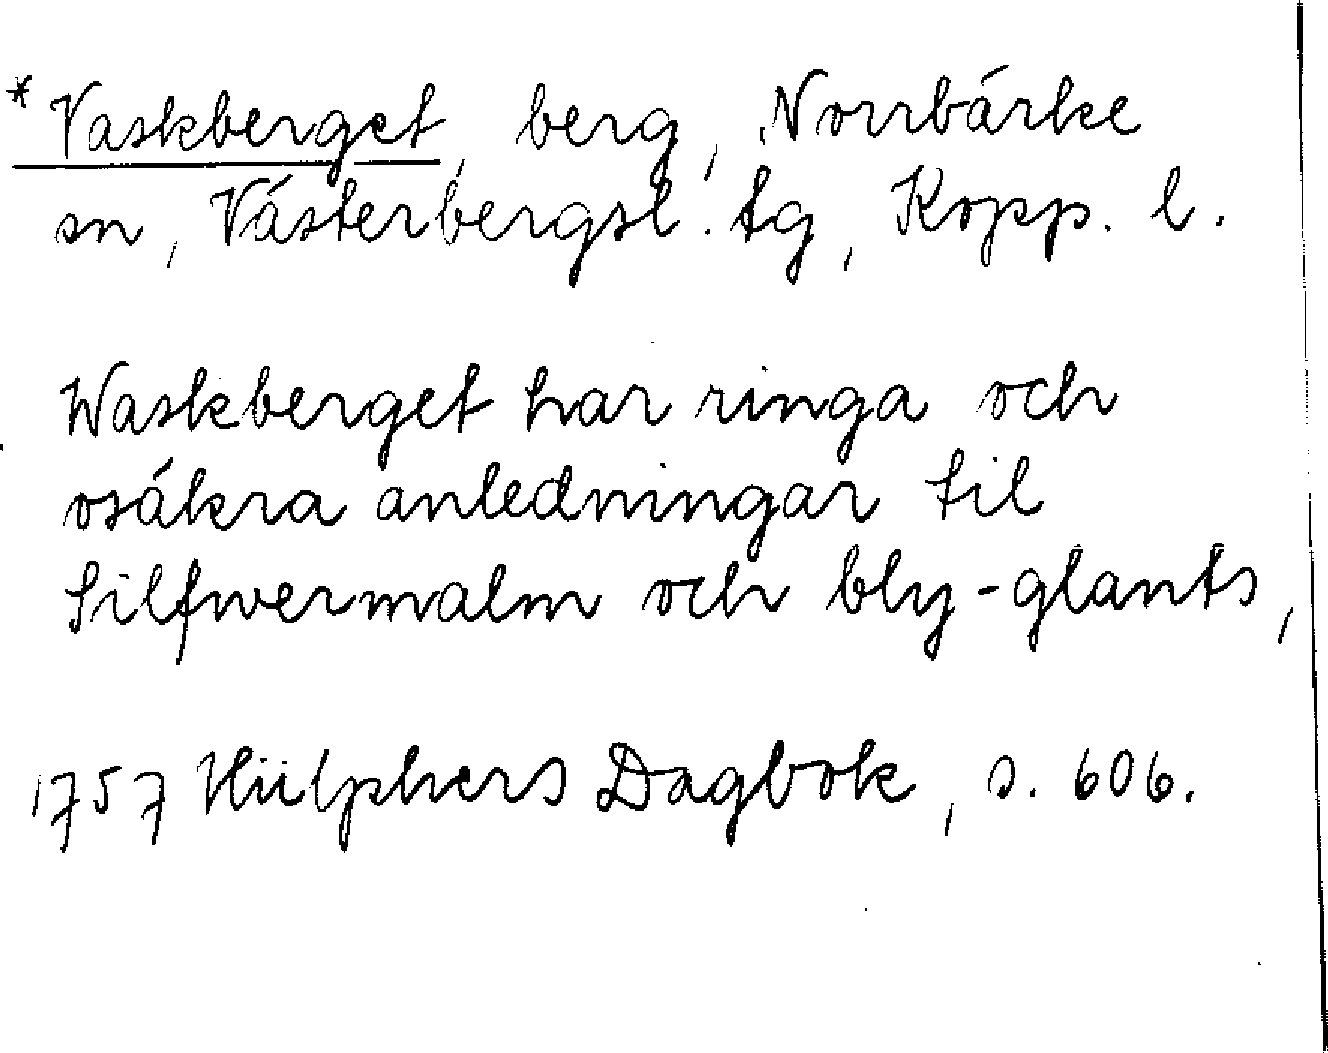 * Vaskberget, berg, Norrbärke
sn, Västerbergsl. tg, Kopp. l.
Waskberget har ringa och
osäkra anledningar til
Silfwermalm och bly-glants,
1757 Hülphers Dagbok, s. 606.